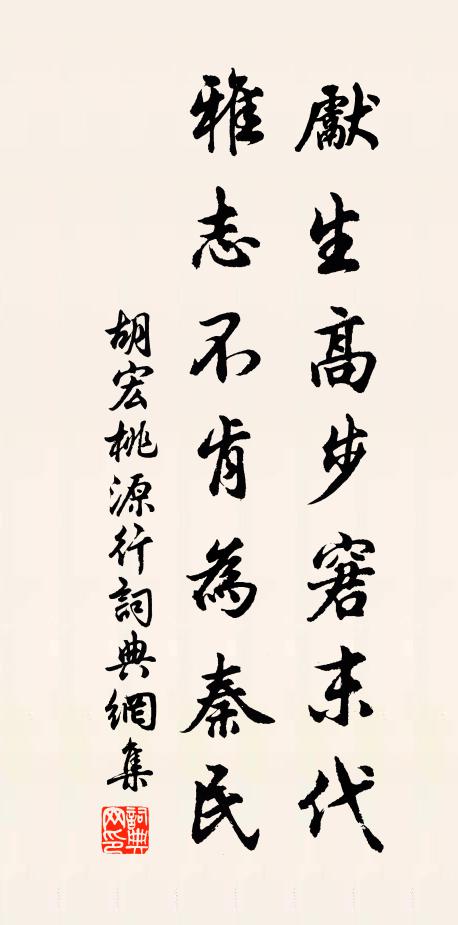 獻生高步窘末代
雅志不肯為秦民
胡宏桃源行詞典網集
詞典网印